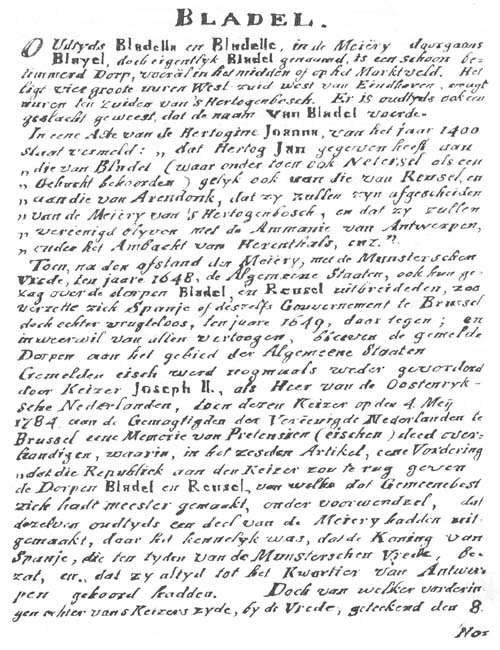 BLADEL.
OUdtyds Bladella en Bladelle, in de Meiëry doorgaans
Blayel, doch eigentlyk Bladel genaamd, is een schoon be-
timmerd Dorp, vooral in het midden of op het Marktveld. Het
ligt vier groote uuren West zuid west van Eindhoven,
uuren ten zuiden van 's Hertogenbosch. Er is oudtyds ook een
geslacht geweest, dat de naam van Bladel voerde.
In eene Acte van de Hertoginne Joanna, van het jaar 1400
staat vermeld: „ dat Hertog Jan gegeven heeft aan
„ die van Bladel (waar onder toen ook Netersel als een
„ Gehucht behoorden) gelyk ook aan die van Reusel, en
„ aan die van Arendonk, dat zy zullen zyn afgescheiden
„ van de Meiëry van 's Hertogenbosch, en dat zy zullen
„ vereenigd blyven met de Ammanie van Antwerpen,
„ onder het Ambacht van Herenthals, enz."
Toen, na den afstand der Meiëry, met de Munsterschen
Vrede, ten jaare 1648, de Algemeene Staaten, ook hun ge-
zag over de dorpen Bladel, en Reusel uitbreideden, zoo
verzette zich Spanje of deszelfs Gouvernement te Brussel
doch echter vrugteloos, ten jaare 1649, daar tegen; en
in weerwil van allen vertoogen, bleeven de gemelde
Dorpen aan het gebied der Algemeene Staaten
Gemelden eisch werd nogmaals weder gevorderd
door Keizer Joseph II., als Heer van de Oostenryk-
sche Nederlanden, toen dezen Keizer op den 4. Meij
1784. aan de Gemagtigden der Vereenigde Nederlanden te
Brussel eene Memorie van Pretensien (eischen) deed over-
handigen, waarin, in het zesden Artikel, eene Vordering
„dat die Republiek aan den Keizer zou te rug geven
de Dorpen Bladel en Reusel, van welke dat Gemeenebest
zich hadt meester gemaakt, onder voorwendzel, dat
dezelven oudtyds een deel van de Meiery hadden uit-
gemaakt, daar het kennelyk was, dat de Koning van
Spanje, die ten tyden van de Munsterschen Vrede, be-
zat, en, dat zy altyd tot het Kwartier van Antwer-
pen gehoord hadden. Doch van welker vorderin
gen echter van s Keizers zyde, by de Vrede, geteekend den 8.
Nov